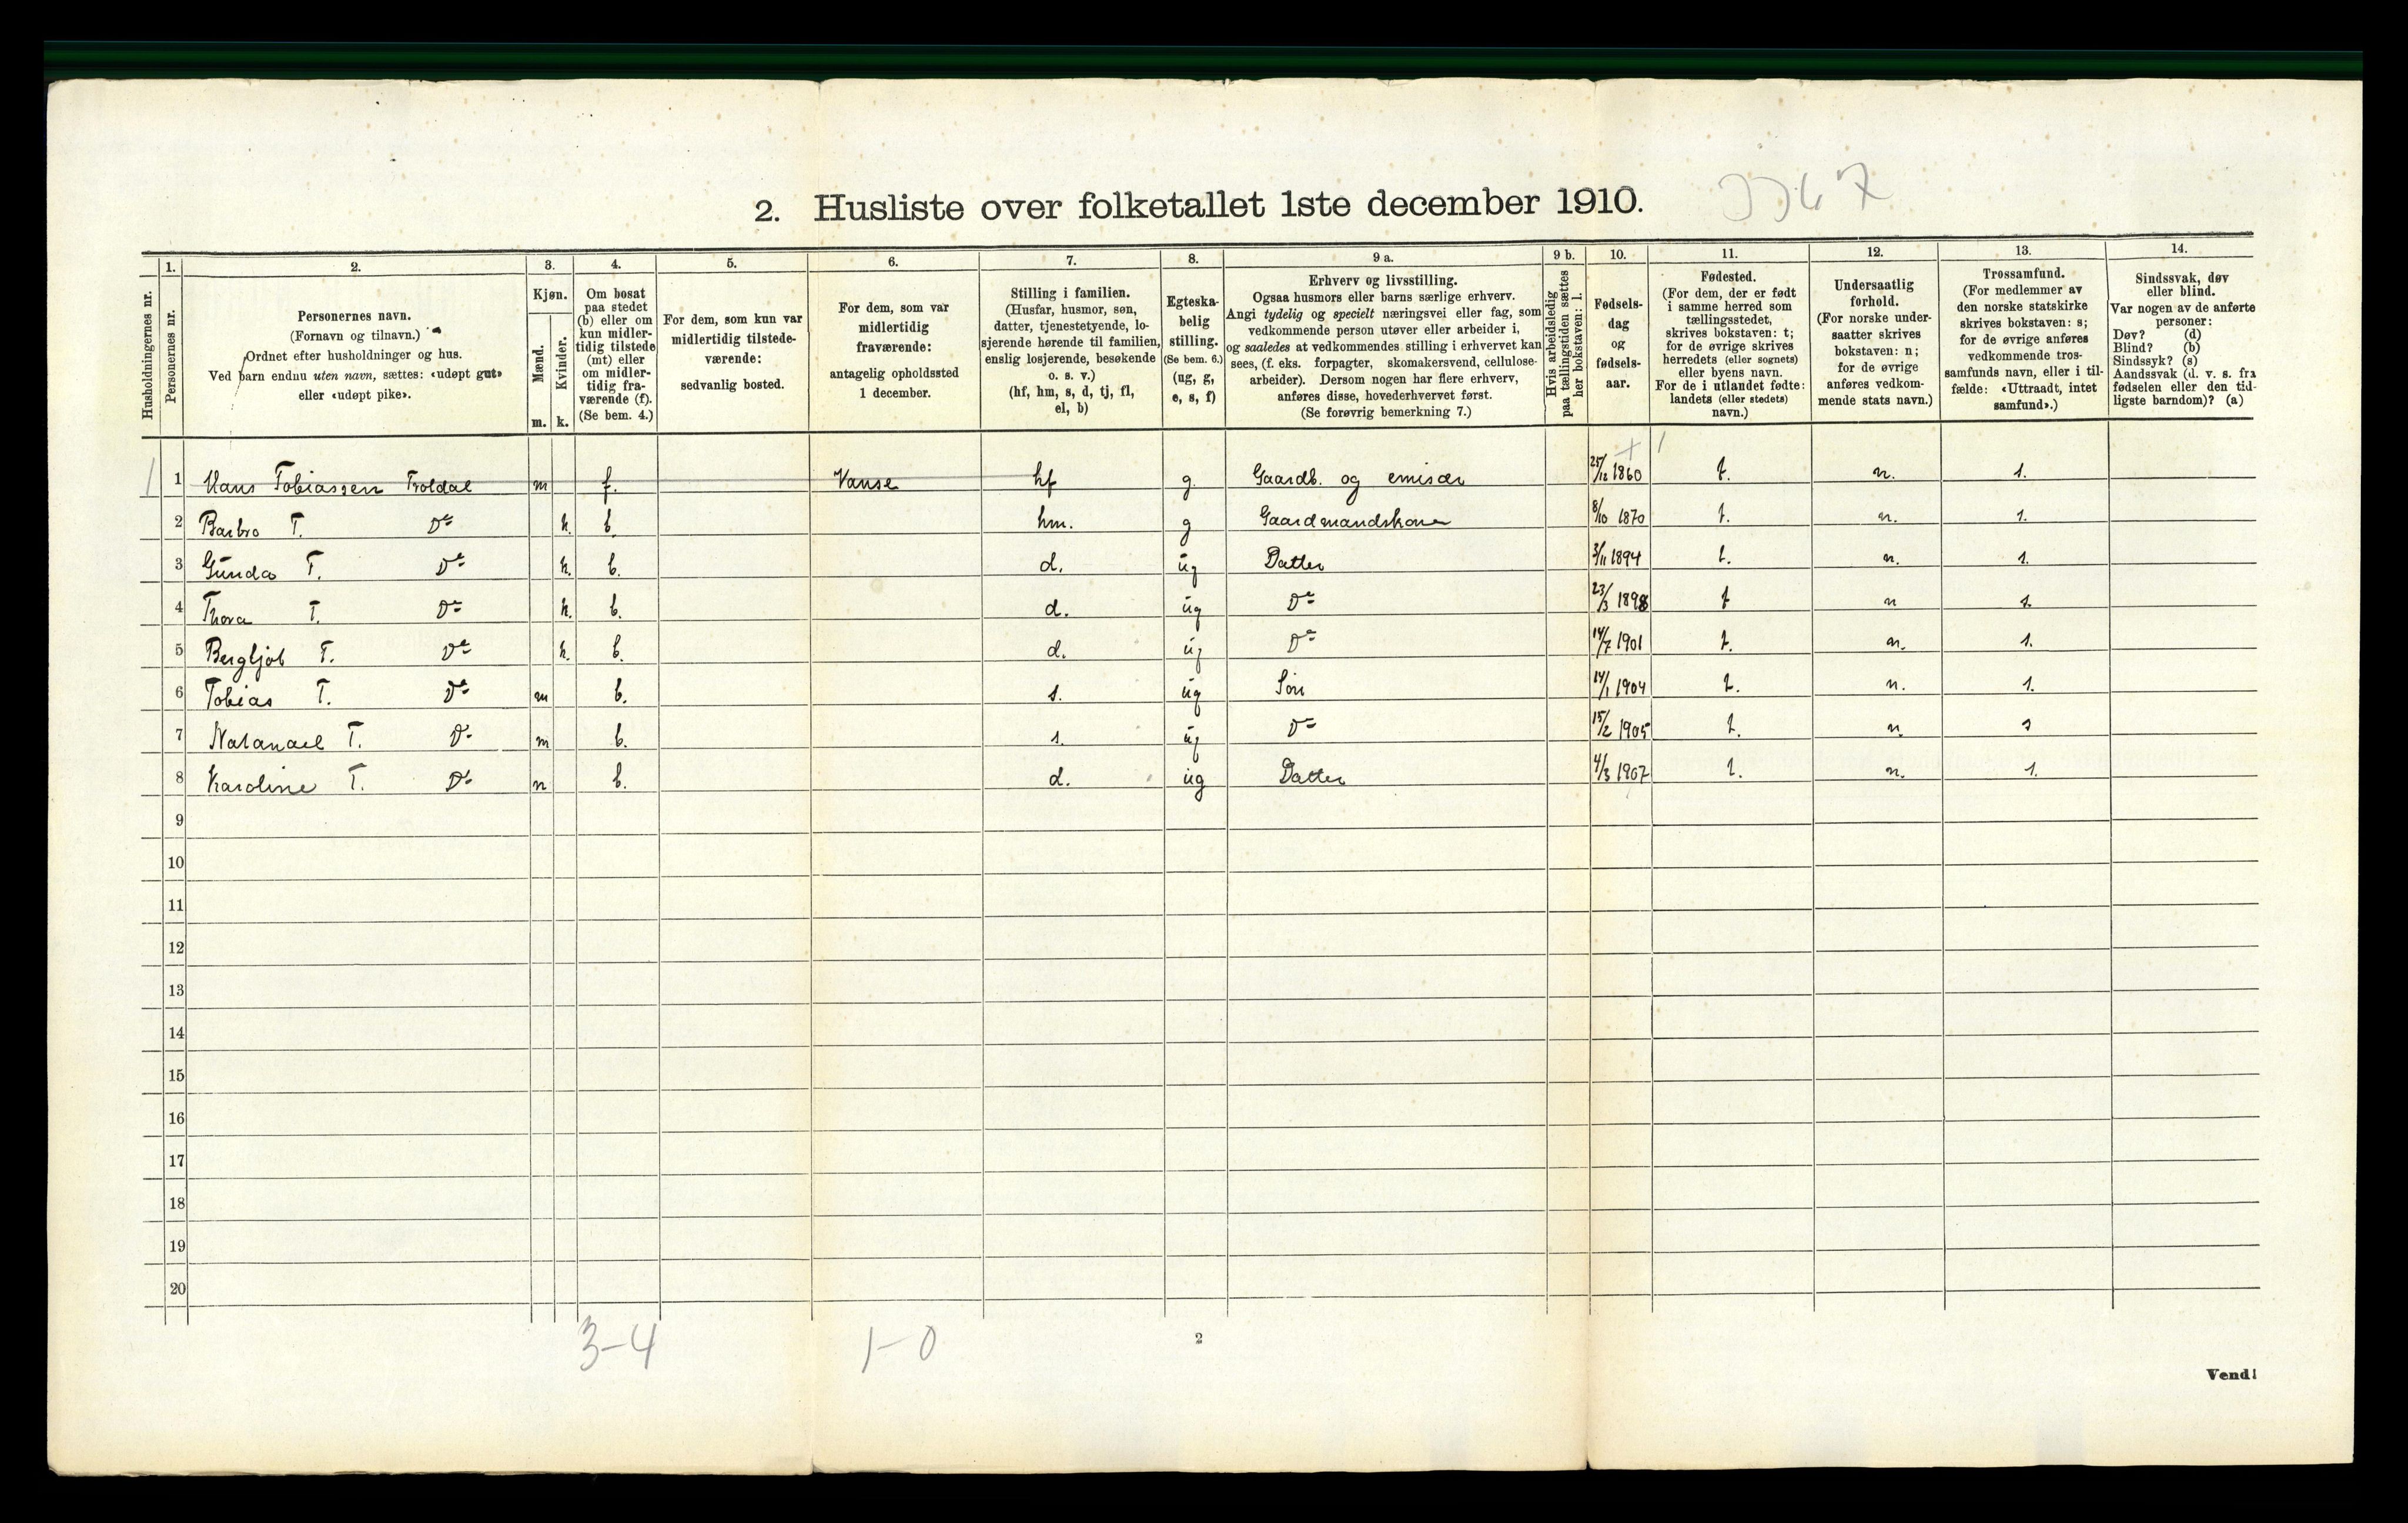 2. Husliste over folketallet 1ste december 1910.
Husholdningernes nr.
1.
Personernes nr.
2.
Personernes navn.
(Fornavn og tilnavn.)
Ordnet efter husholdninger og hus.
Ved barn endnu uten navn, sættes: «udøpt gut»
eller «udøpt pike».
3.
Kjøn.
Mænd.
Kvinder.
m. k.
4.
Om bosat
paa stedet
(b) eller om
kun midler-
tidig tilstede
(mt) eller
om midler-
tidig fra-
værende (f).
(Se bem. 4.)
5.
For dem, som kun var
midlertidig tilstede-
værende:
sedvanlig bosted.
6.
For dem, som var
midlertidig
fraværende:
antagelig opholdssted
1 december.
7.
Stilling i familien.
(Husfar, husmor, søn,
datter, tjenestetyende, lo-
sjerende hørende til familien,
enslig losjerende, besøkende
o. s. v.)
(hf, hm, s, d, tj, fl,
el, b)
8.
Egteska-
belig
stilling.
(Se bem. 6.)
(ug, g,
e, s, f)
9 a.
Erhverv og livsstilling.
Ogsaa husmors eller barns særlige erhverv.
Angi tydelig og specielt næringsvei eller fag, som
vedkommende person utøver eller arbeider i,
og saaledes at vedkommendes stilling i erhvervet kan
sees, (f. eks. forpagter, skomakersvend, cellulose-
arbeider). Dersom nogen har flere erhverv,
anføres disse, hovederhvervet først.
(Se forøvrig bemerkning 7.)
9 b.
Hvis arbeidsledig
paa tællingstiden sættes
her bokstaven: l.
10.
Fødsels-
dag
og
fødsels-
aar.
11.
Fødested.
(For dem, der er født
i samme herred som
tællingsstedet,
skrives bokstaven: t;
for de øvrige skrives
herredets (eller sognets)
eller byens navn.
For de i utlandet fødte:
landets (eller stedets)
navn.)
12.
Undersaatlig
forhold.
(For norske under-
saatter skrives
bokstaven: n;
for de øvrige
anføres vedkom-
mende stats navn.)
13.
Trossamfund.
(For medlemmer av
den norske statskirke
skrives bokstaven: s;
for de øvrige anføres
vedkommende tros-
samfunds navn, eller i til-
fælde: «Uttraadt, intet
samfund».)
14.
Sindssvak, døv
eller blind.
Var nogen av de anførte
personer:
Døv? (d)
Blind? (b)
Sindssyk? (s)
Aandssvak (d. v. s. fra
fødselen eller den tid-
ligste barndom)? (a)
1 1 Hans Tobiassen Troldal m f. Vanse hf g. Gaardb. og emisær 25/12 1860 t. n. s.
2 Barbro T. Do k. b. hm. g Gaardmandskone 8/10 1870 t. n. s.
3 Gunda T. Do k. b. d. ug Datter 3/11 1894 t. n. s.
4 Thora T. Do k. b. d. ug Do 23/3 1898 t n s.
5 Bergljot T. Do k. b. d. ug Do 14/7 1901 t. n. s.
6 Tobias T. Do m b. s. ug Søn 14/1 1904 t. n. s.
7 Natanael T. Do m b. s. ug Do 15/2 1905 t. n. s
8 Karoline T. Do b. d. ug Datter 4/3 1907 t. n. s.
9
10
11
12
13
14
15
16
17
18
19
20
3-4 1-0
2
Vend!